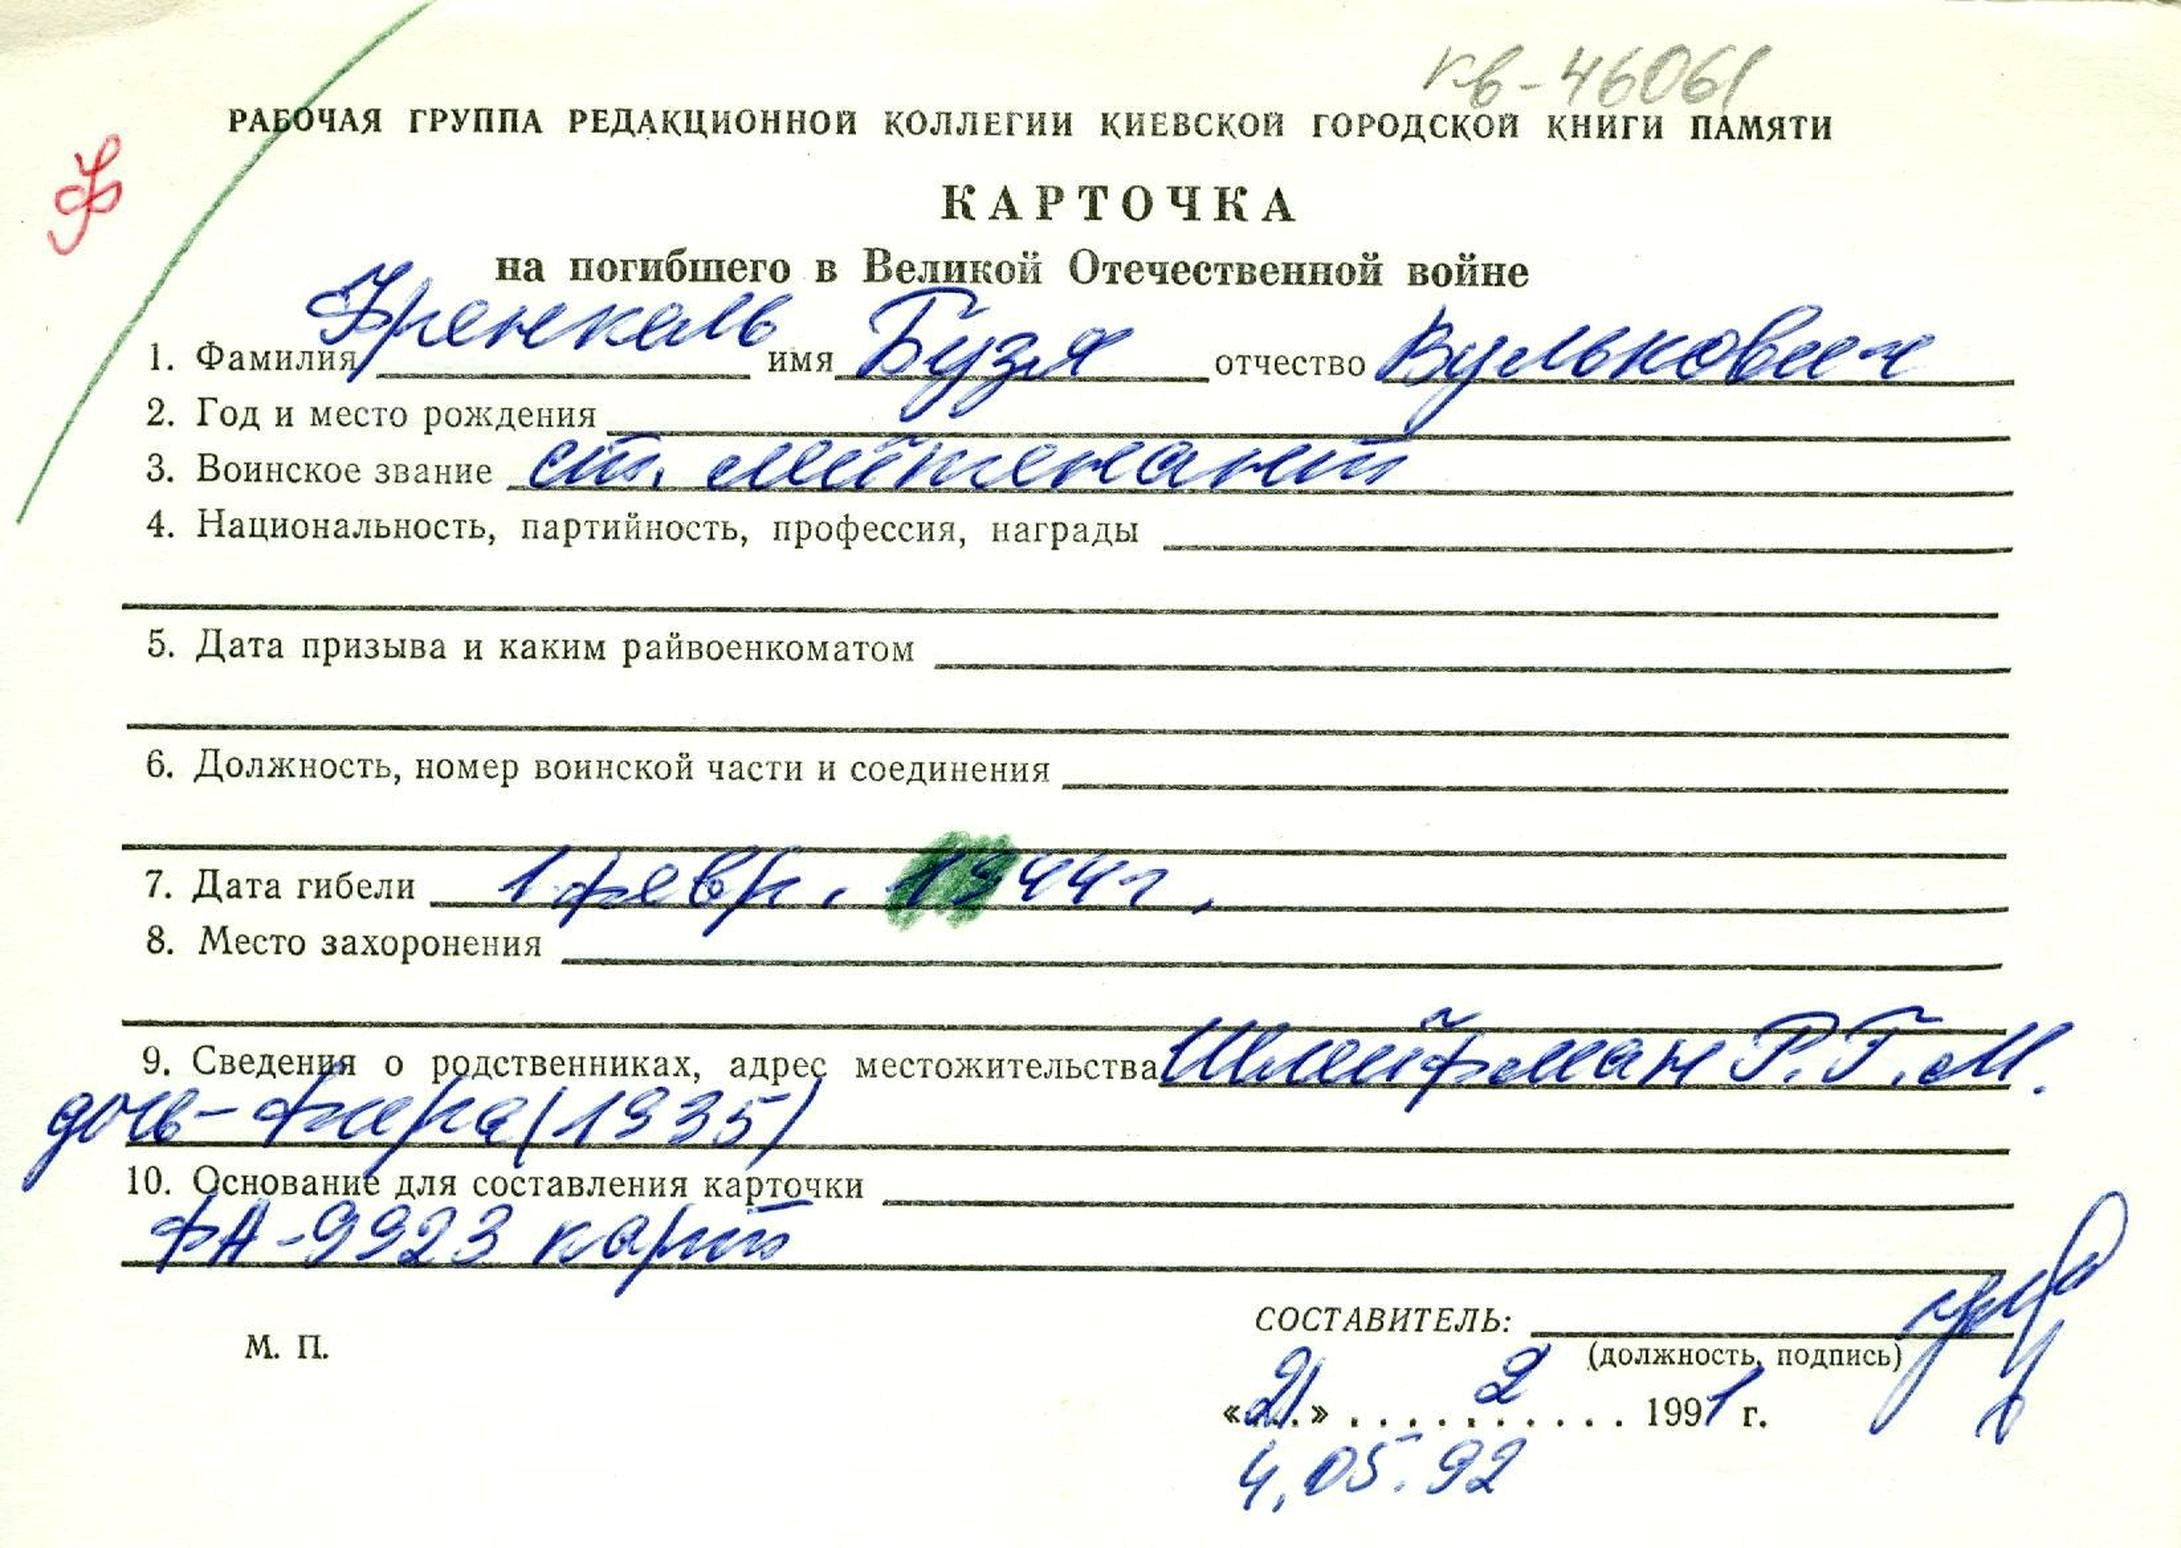 кв-46061
РАБОЧАЯ ГРУППА РЕДАКЦИОННОЙ КОЛЛЕГИИ КИЕВСКОЙ ГОРОДСКОЙ КНИГИ ПАМЯТИ
Ф
КАРТОЧКА
на погибшего в Великой Отечественной войне
1. Фамилия Френкель имя Бузя отчество Вулькович
2. Год и место рождения
3. Воинское звание ст. лейтенант
4. Национальность, партийность, профессия, награды
5. Дата призыва и каким райвоенкоматом
6. Должность, номер воинской части и соединения
7. Дата гибели 1 февр. 1944 г.
8. Место захоронения
9. Сведения о родственниках, адрес местожительства Шлейфман Р. Г. М.
дочь - Фира (1935)
10. Основание для составления карточки
ФА-9923 карт
СОСТАВИТЕЛЬ:
М. П.
(должность, подпись)
«21» 2 1991 г.
4.05.92